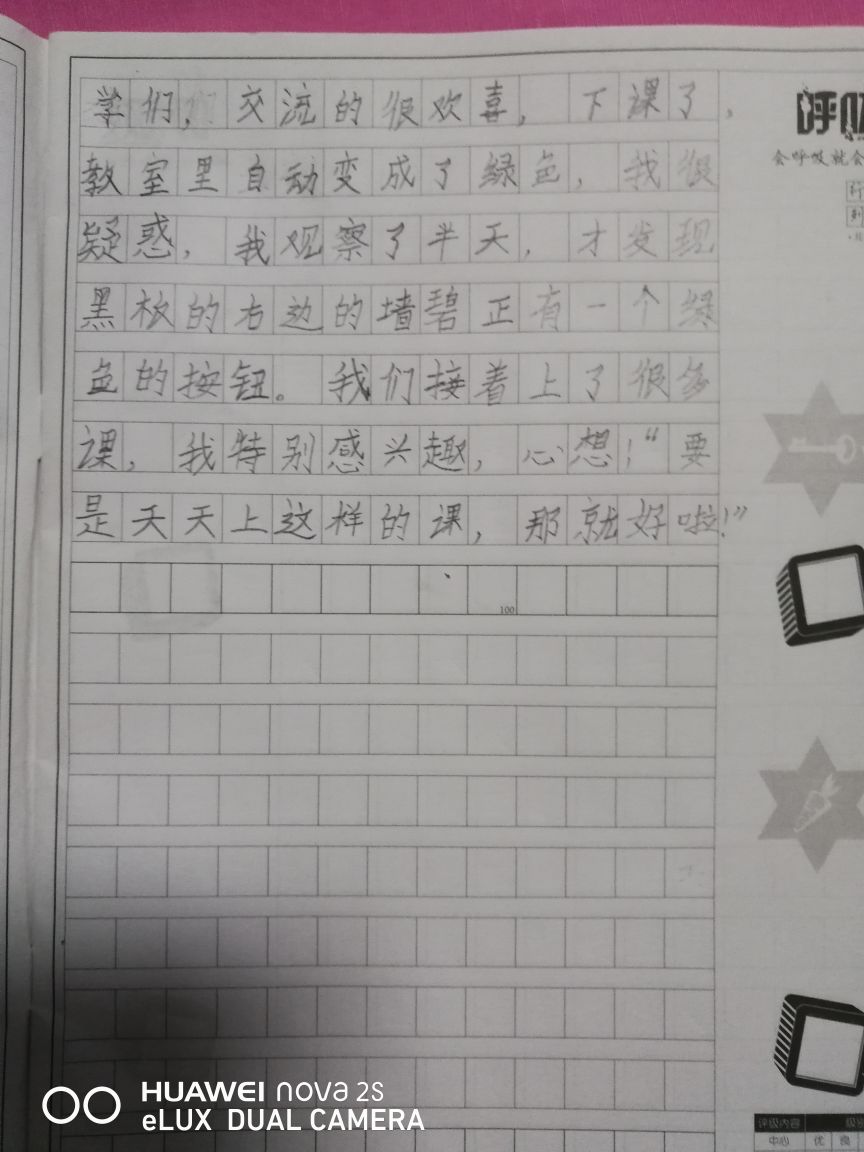 学们，交流的很欢喜，下课了，
教室里自动变成了绿色，我很
疑惑，我观察了半天，才发现
黑板的右边的墙碧正有一个绿
色的按钮。我们接着上了很多
课，我特别感兴趣，心想！“要
是天天上这样的课，那就好啦！”
100
会呼吸就会
评级内容
中心 优 良
HUAWEI nova 2S
eLUX DUAL CAMERA